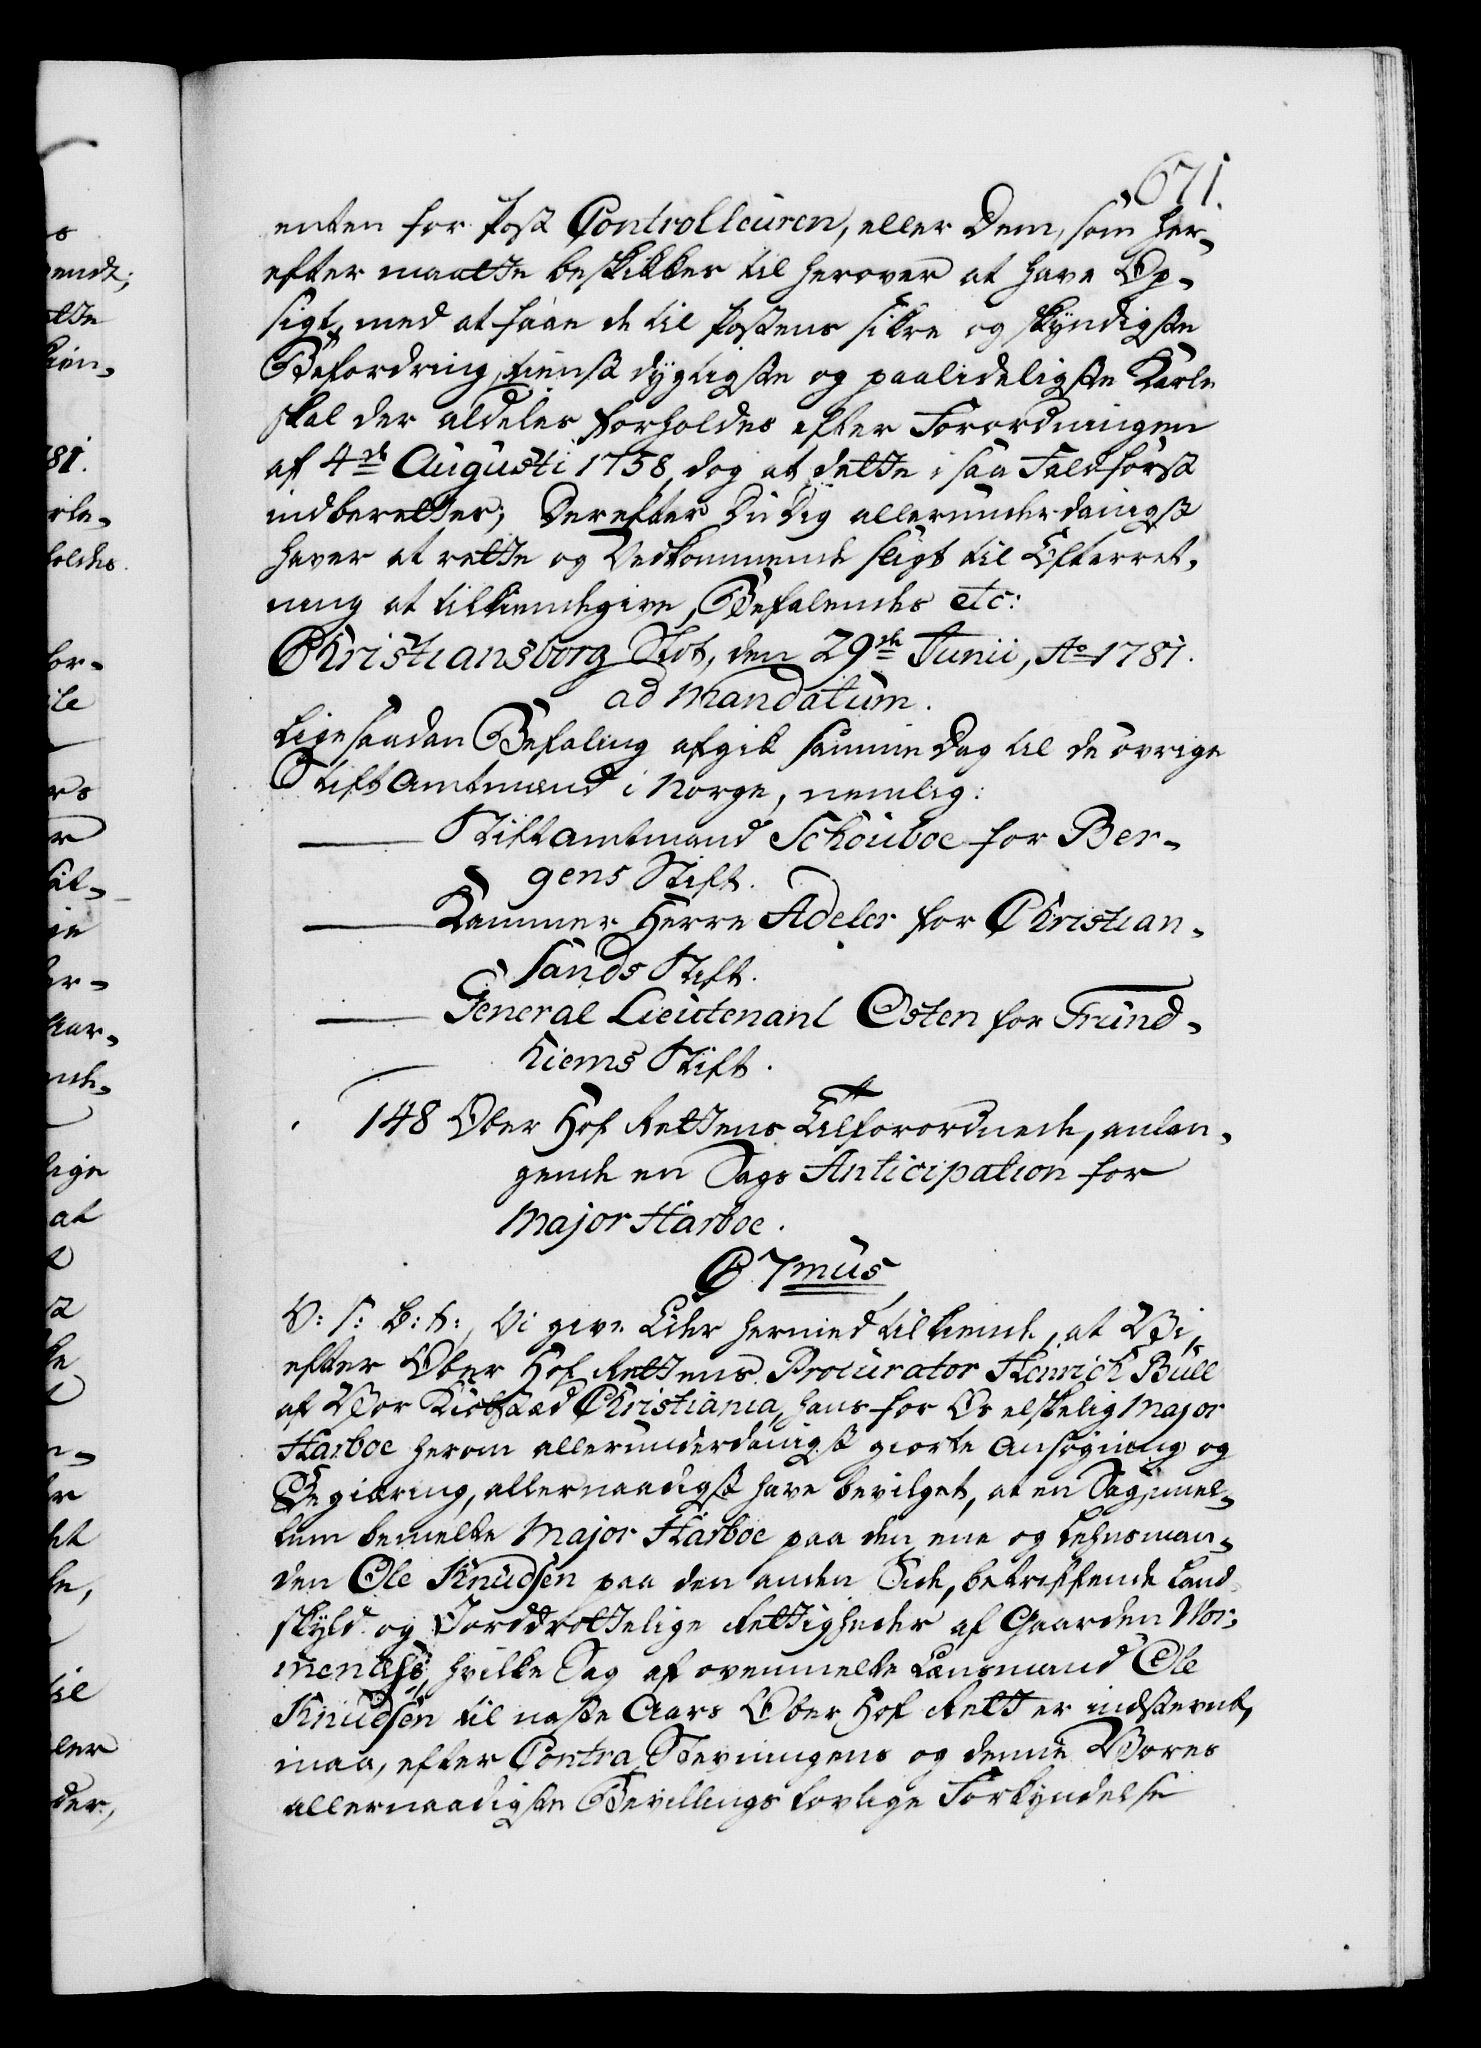 671.
enten for Post Controlleuren, eller Dem, som her-
efter maatte beskikkes til herover at have Op-
sigt, med at faae de til Postens sikre og skyndigste
Befordring, tienst dygtigste og paalideligste Karle
skal der aldeles forholdes efter Forordningen
af 4de Augusti 1758, dog at dette i saa Fald først
indberettes; Derefter Du Dig allerunderdanigst
haver at rette og Vedkommende sligt til Efterret-
ning at tilkiendegive, Befalendes etc:
Christiansborg Slot, den 29de Junii, Ao 1781.
ad mandatum.
Lige saadan Befaling afgik samme Dag til de øvrige
Stiftamtmænd i Norge, nemlig:
Stiftamtmand Schouboe for Ber-
gens Stift.
Kammer Herre Adeler for Christian-
sands Stift.
General Lieutenant Osten for Trund-
hiems Stift.
148 Ober Hof Rettens Tilforordnede, anlan-
gende en Sags Anticipation for
Major Harboe.
C 7mus
V: S: B: H:, Vi give Eder hermed tilkiende, at Vi,
efter Ober Hof Rettens Procurator Henrich Bull
af Vor Kiøbstæd Christiania, hans for Os elskelig Major
Harboe herom allerunderdanigst giorte Ansøgning og
Begiæring, allernaadigst have bevilget, at en Sag, mel-
lem bemelte Major Harboe paa den ene og Lehnsman-
den Ole Knudsen paa den anden Side, betreffende Land-
skyld og Jorddrottelige Rettigheder af Gaarden Wor-
menæss, hvilke Sag af ovenmelte Lænsmand Ole
Knudsen til næste Aars Ober Hof Rett er indstevnt,
maa, efter Contra Stevningens og denne Vores
allernaadigste Bevillings lovlige Forkyndelse